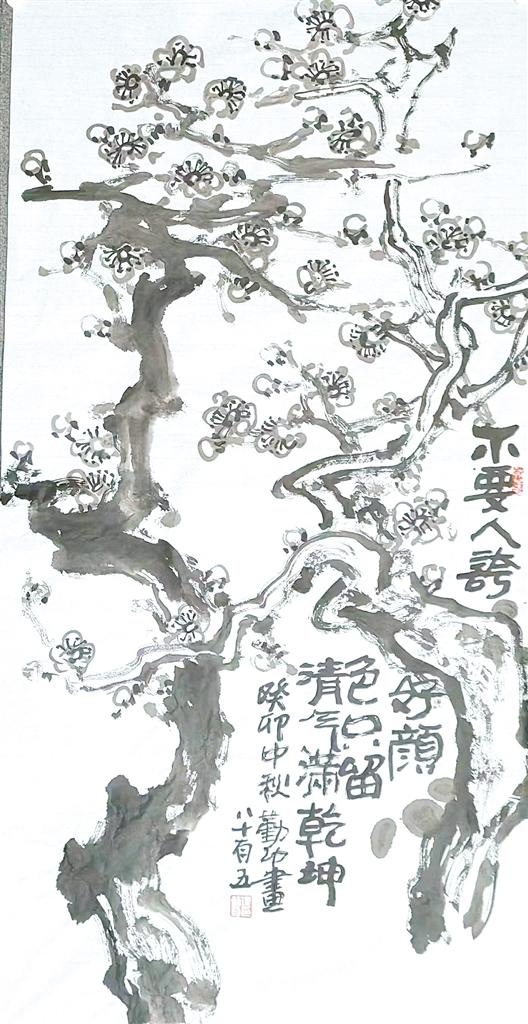 不要人誇
好顏
色只留
清气滿乾坤
癸卯中秋 勸功畫
八十有五